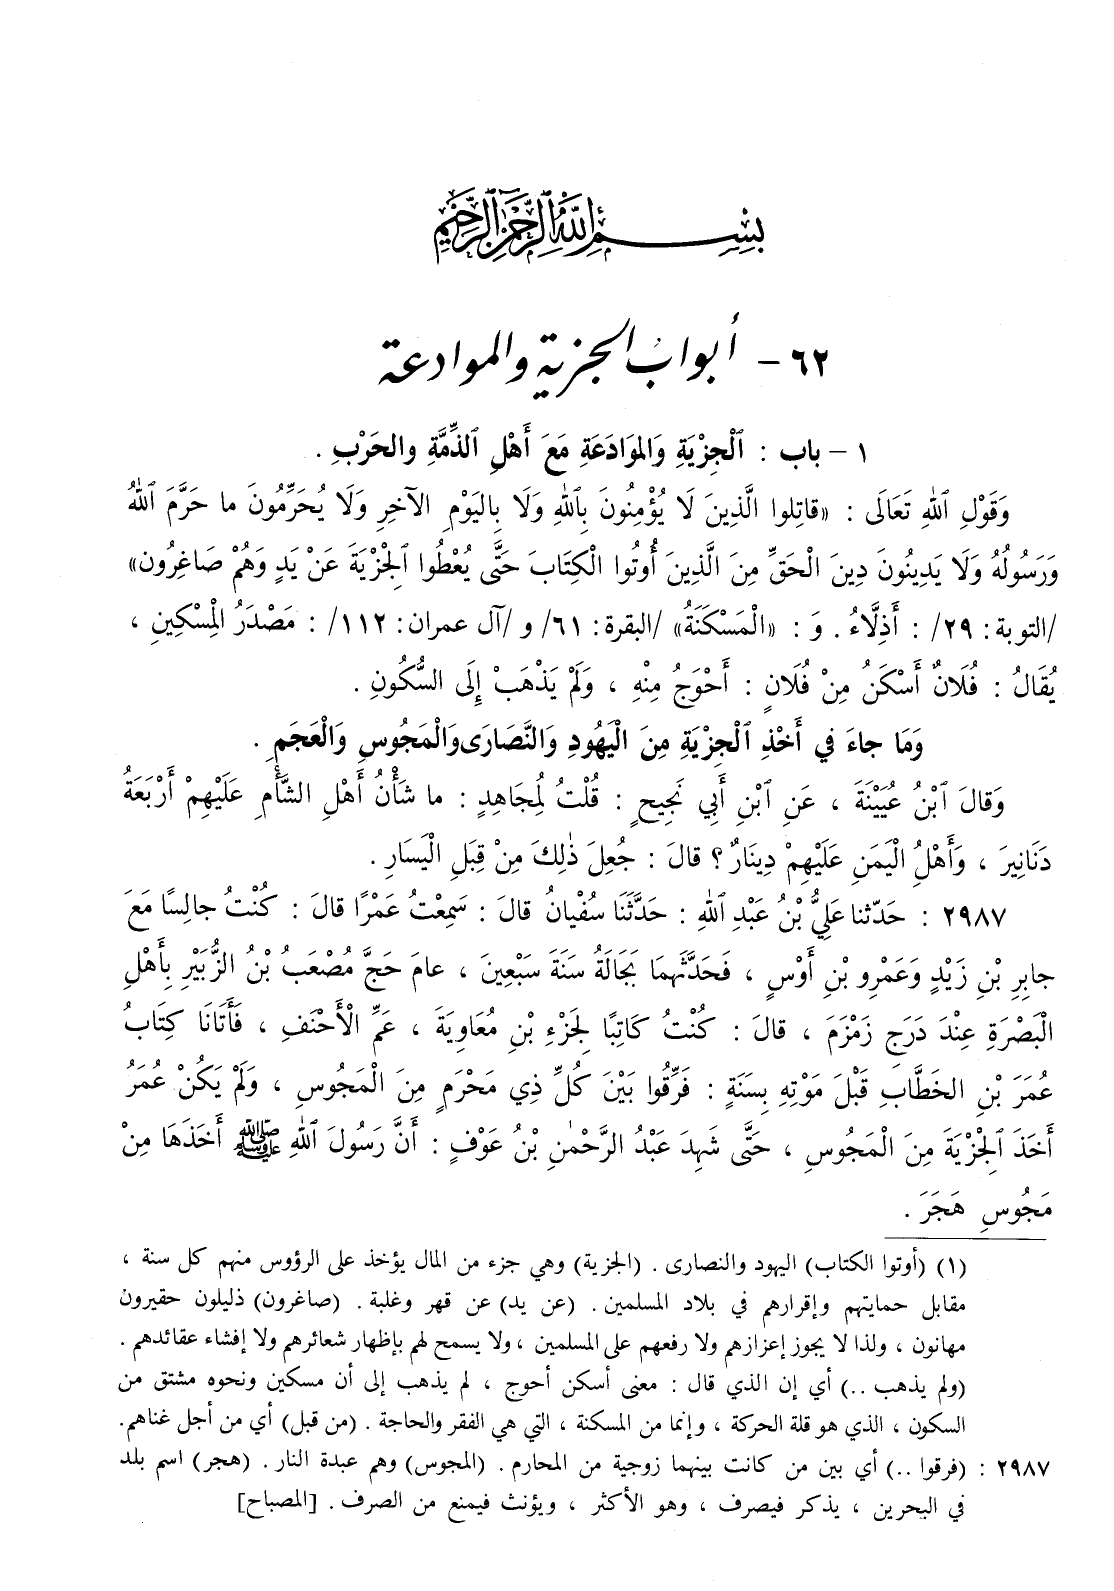 بِسْمِ اللهِ الرَّحْمٰنِ الرَّحِيمِ
٦٢ - أبوابُ الجزية والموادعة
١ - باب : ٱلْجِزْيَةِ وَالْمُوَادَعَةِ مَعَ أَهْلِ ٱلذِّمَّةِ والحَرْبِ .
وَقَوْلِ ٱللهِ تَعَالَى : «قاتِلوا الَّذِينَ لَا يُؤْمِنُونَ بِٱللهِ وَلَا بِالْيَوْمِ الآخِرِ وَلَا يُحَرِّمُونَ ما حَرَّمَ ٱللهُ
وَرَسُولُهُ وَلَا يَدِينُونَ دِينَ الْحَقِّ مِنَ الَّذِينَ أُوتُوا الْكِتَابَ حَتَّى يُعْطُوا ٱلْجِزْيَةَ عَنْ يَدٍ وَهُمْ صَاغِرُون»
/التوبة: ٢٩/ : أَذِلَّاءُ . وَ : «الْمَسْكَنَةُ» /البقرة: ٦١/ و /آل عمران: ١١٢/ : مَصْدَرُ الْمِسْكِينِ ،
يُقَالُ : فُلَانٌ أَسْكَنُ مِنْ فُلَانٍ : أَحْوَجُ مِنْهُ ، وَلَمْ يَذْهَبْ إِلَى السُّكُونِ .
وَمَا جاءَ في أَخْذِ ٱلْجِزْيَةِ مِنَ الْيَهُودِ وَالنَّصَارَى وَالْمَجُوسِ وَالْعَجَمِ .
وَقالَ ٱبْنُ عُيَيْنَةَ ، عَنِ ٱبْنِ أَبِي نَجِيحٍ : قُلْتُ لِمُجَاهِدٍ : ما شَأْنُ أَهْلِ الشَّأْمِ عَلَيْهِمْ أَرْبَعَةُ
دَنَانِيرَ ، وَأَهْلُ الْيَمَنِ عَلَيْهِمْ دِينَارٌ ؟ قالَ : جُعِلَ ذٰلِكَ مِنْ قِبَلِ الْيَسَارِ .
٢٩٨٧ : حَدّثنا عَلِيُّ بْنُ عَبْدِ ٱللهِ : حَدَّثَنَا سُفْيانُ قالَ : سَمِعْتُ عَمْرًا قالَ : كُنْتُ جالِسًا مَعَ
جابِرِ بْنِ زَيْدٍ وَعَمْرِو بْنِ أَوْسٍ ، فَحَدَّثَهُمَا بَجَالَةُ سَنَةَ سَبْعِينَ ، عامَ حَجَّ مُصْعَبُ بْنُ الزُّبَيْرِ بِأَهْلِ
الْبَصْرَةِ عِنْدَ دَرَجِ زَمْزَمَ ، قالَ : كُنْتُ كَاتِبًا لِجَزْءِ بْنِ مُعَاوِيَةَ ، عَمِّ الْأَحْنَفِ ، فَأَتَانَا كِتَابُ
عُمَرَ بْنِ الخَطَّابِ قَبْلَ مَوْتِهِ بِسَنَةٍ : فَرِّقُوا بَيْنَ كُلِّ ذِي مَحْرَمٍ مِنَ الْمَجُوسِ ، وَلَمْ يَكُنْ عُمَرُ
أَخَذَ ٱلْجِزْيَةَ مِنَ الْمَجُوسِ ، حَتَّى شَهِدَ عَبْدُ الرَّحْمٰنِ بْنُ عَوْفٍ : أَنَّ رَسُولَ ٱللهِ ﷺ أَخَذَهَا مِنْ
مَجُوسِ هَجَرَ .
(١) (أوتوا الكتاب) اليهود والنصارى . (الجزية) وهي جزء من المال يؤخذ على الرؤوس منهم كل سنة ،
مقابل حمايتهم وإقرارهم في بلاد المسلمين . (عن يد) عن قهر وغلبة . (صاغرون) ذليلون حقيرون
مهانون ، ولذا لا يجوز إعزازهم ولا رفعهم على المسلمين ، ولا يسمح لهم بإظهار شعائرهم ولا إفشاء عقائدهم .
(ولم يذهب ..) أي إن الذي قال : معنى أسكن أحوج ، لم يذهب إلى أن مسكين ونحوه مشتق من
السكون ، الذي هو قلة الحركة ، وإنما من المسكنة ، التي هي الفقر والحاجة . (من قبل) أي من أجل غناهم.
٢٩٨٧ : (فرقوا ..) أي بين من كانت بينهما زوجية من المحارم . (المجوس) وهم عبدة النار . (هجر) اسم بلد
في البحرين ، يذكر فيصرف ، وهو الأكثر ، ويؤنث فيمنع من الصرف . [المصباح]